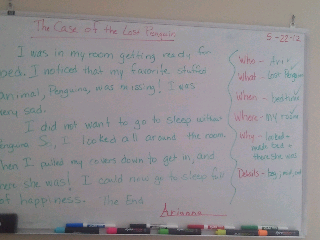 The Case of the Lost Penguin
5-22-12
I was in my room getting ready for
bed. I noticed that my favorite, stuffed
animal, Penguina, was missing! I was
very sad.
I did not want to go to sleep without
Penguina. So, I looked all around the room.
When I pulled my covers down to get in, and
there she was! I could now go to sleep full
of happiness. The End
Arianna
Who - Ari
What - Lost Penguin
When - bedtime
Where - my room
Why - in bed -
there she was
Details -